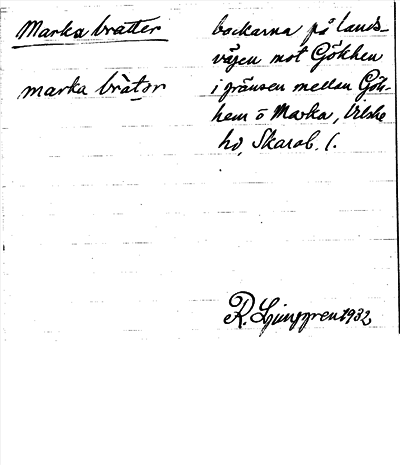 Marka bratter
marka bràtər
backarna på lands-
vägen mot Gökhem
i gränsen mellan Gök-
hem o Marka, Vilske
hd, Skarab. l.
R. Ljunggren 1932